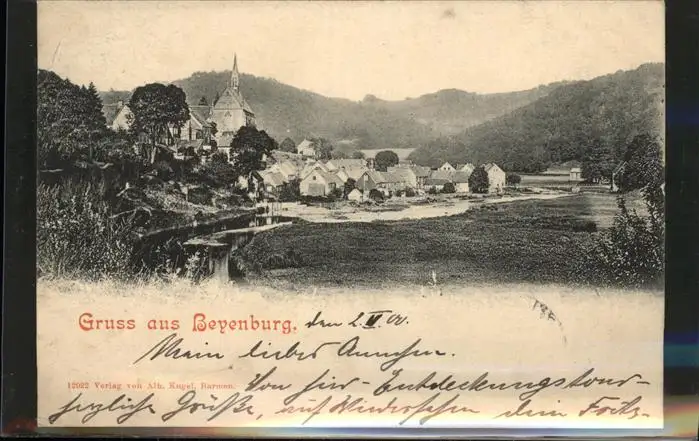 Gruss aus Beyenburg, den 2. VI 00.
Mein liebes Annchen.
12022 Verlag von Alb. Kugel, Barmen.
Von hier Entdeckungstour
herzliche Grüße, auf Wiedersehen dein Fritz